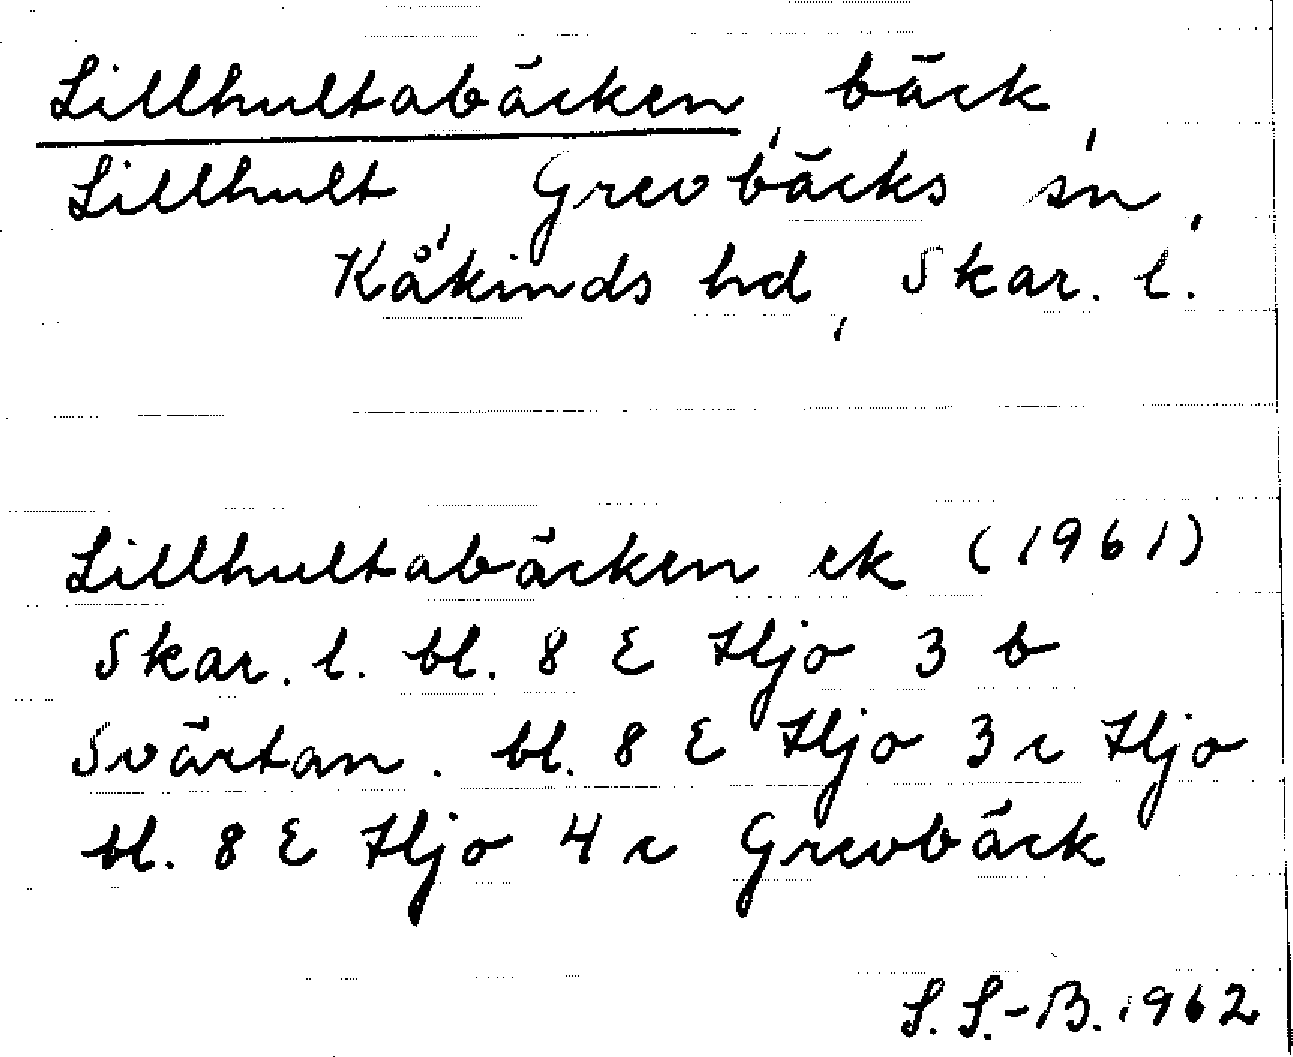 Lillhultabäcken, bäck,
Lillhult, Grevbäcks sn,
Kåkinds hd, Skar. l.
Lillhultabäcken ek (1961)
Skar. l. bl. 8 E Hjo 3 b
Svärtan. bl. 8 E Hjo 3 c Hjo
bl. 8 E Hjo 4 c Grevbäck
S. S.-B. 1962